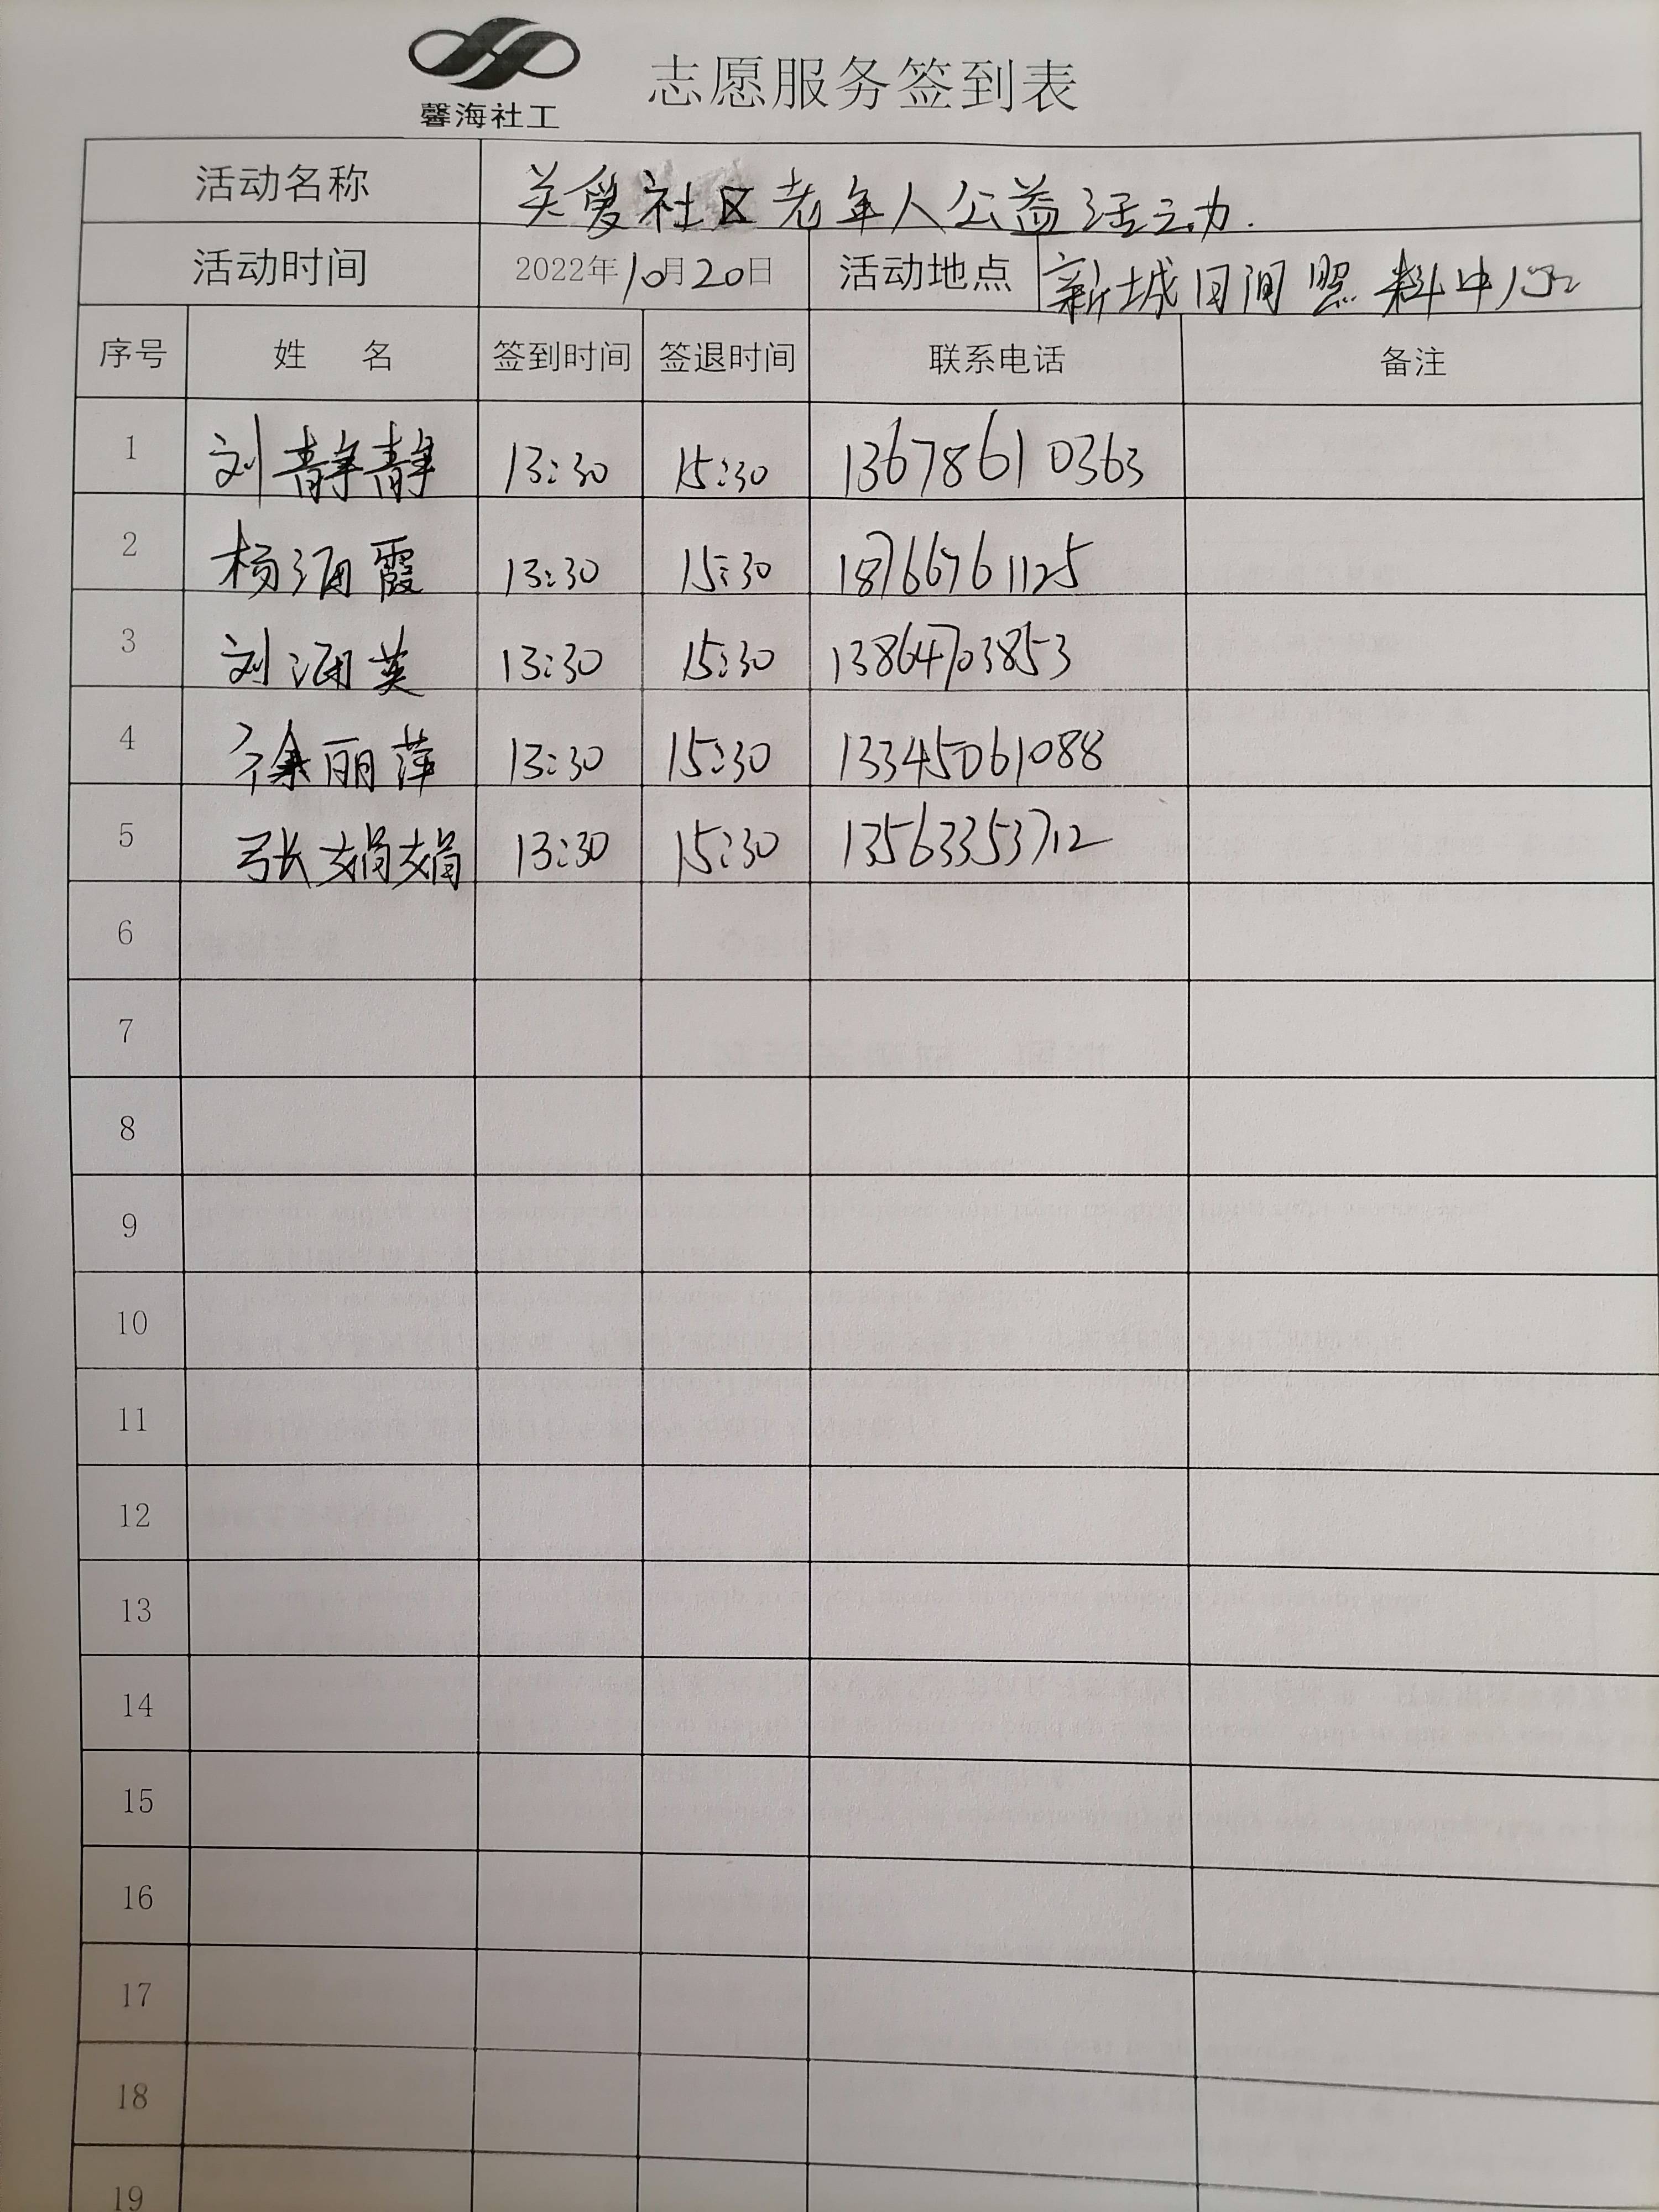 馨海社工
志愿服务签到表
活动名称 关爱社区老年人公益活动.
活动时间 2022年10月20日 活动地点 新城日间照料中心
序号 姓 名 签到时间 签退时间 联系电话 备注
1 刘静静 13:30 15:30 13678610363
2 杨海霞 13:30 15:30 18766761125
3 刘海英 13:30 15:30 13864703853
4 徐丽萍 13:30 15:30 13345061088
5 张娟娟 13:30 15:30 13563353712
6
7
8
9
10
11
12
13
14
15
16
17
18
19